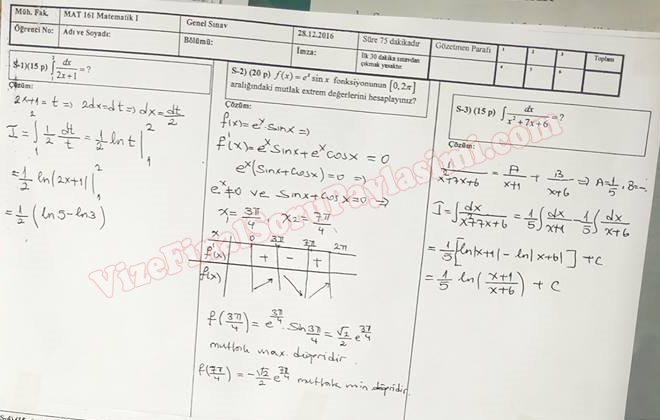 Müh. Fak. MAT 161 Matematik I Genel Sınav 28.12.2016 Süre 75 dakikadır Gözetmen Parafı 1 2 3 Toplam
Öğrenci No: Adı ve Soyadı: Bölümü: İmza: İlk 30 dakika sınavdan çıkmak yasaktır. 4 5 6
S-1)(15 p) ∫ dx/(2x+1) = ?
Çözüm:
2x+1 = t ⇒ 2dx = dt ⇒ dx = dt/2
I = ∫₁² 1/2 dt/t = 1/2 ln t |₁²
= 1/2 ln(2x+1) |₁²
= 1/2 (ln5 - ln3)
S-2) (20 p) f(x) = eˣ sin x fonksiyonunun [0, 2π]
aralığındaki mutlak extrem değerlerini hesaplayınız?
Çözüm:
f(x) = eˣ sinx ⇒
f'(x) = eˣ sinx + eˣ cosx = 0
eˣ(sinx + cosx) = 0 ⇒
eˣ ≠ 0 ve sinx + cosx = 0 ⇒
x = 3π/4 x₂ = 7π/4
x 0 3π/4 7π/4 2π
f'(x) + - +
f(x) ↗ ↘ ↗
f(3π/4) = e^(3π/4) . Sin 3π/4 = √2/2 e^(3π/4)
mutlak max. değeridir.
f(7π/4) = -√2/2 e^(7π/4) mutlak min değeridir.
S-3) (15 p) ∫ dx/(x²+7x+6) = ?
Çözüm:
1/(x²+7x+6) = A/(x+1) + B/(x+6) ⇒ A = 1/5, B = -
I = ∫ dx/(x²+7x+6) = 1/5 ∫ dx/(x+1) - 1/5 ∫ dx/(x+6)
= 1/5 [ln|x+1| - ln|x+6|] + C
= 1/5 ln((x+1)/(x+6)) + C
VizeFinalSoruPaylasimi.com